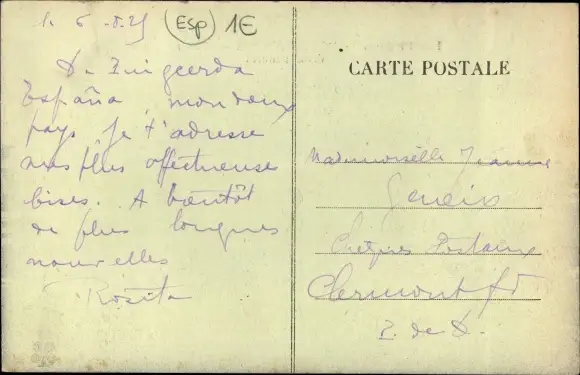 (Esp) 1E
De Puigcerda
España, mon doux
pays je t'adresse
mes plus affectueuses
bises. A bientôt
de plus longues
nouvelles
Rosita
CARTE POSTALE
Mademoiselle Jeanne
Chèques Postaux
Clermont fd
P. de D.